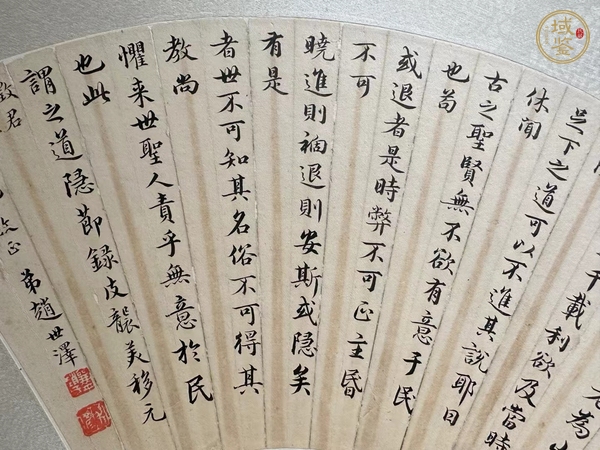 千載利欲及當時
下之道可以不進其說耶曰
休閒
古之聖賢無不欲有意于民
也苟
或退者是時弊不可正主昏
不可
曉進則禍退則安斯或隱矣
有是
者世不可知其名俗不可得其
教尚
懼来世聖人責乎無意於民
也此
謂之道隱節錄皮襲美移元
君
正弟趙世澤
域鑒